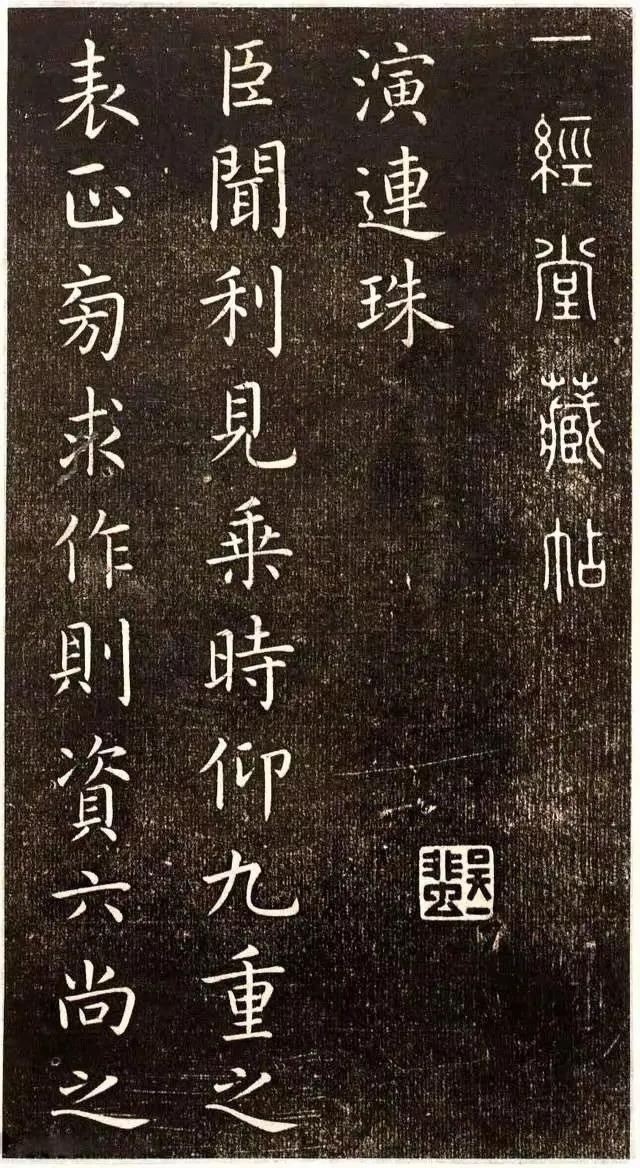 一經堂藏帖
演連珠
臣聞利見乗時仰九重之
表正旁求作則資六尚之
吴一蜚